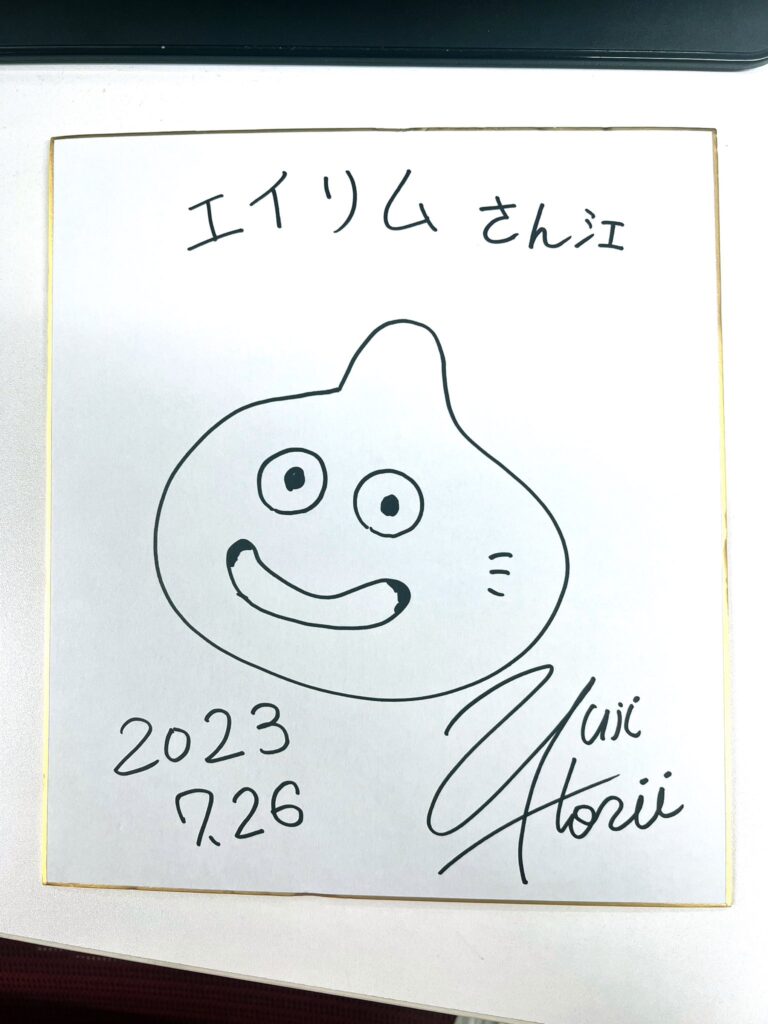 エイリム さん江
2023
7.26
Yuji
Horii